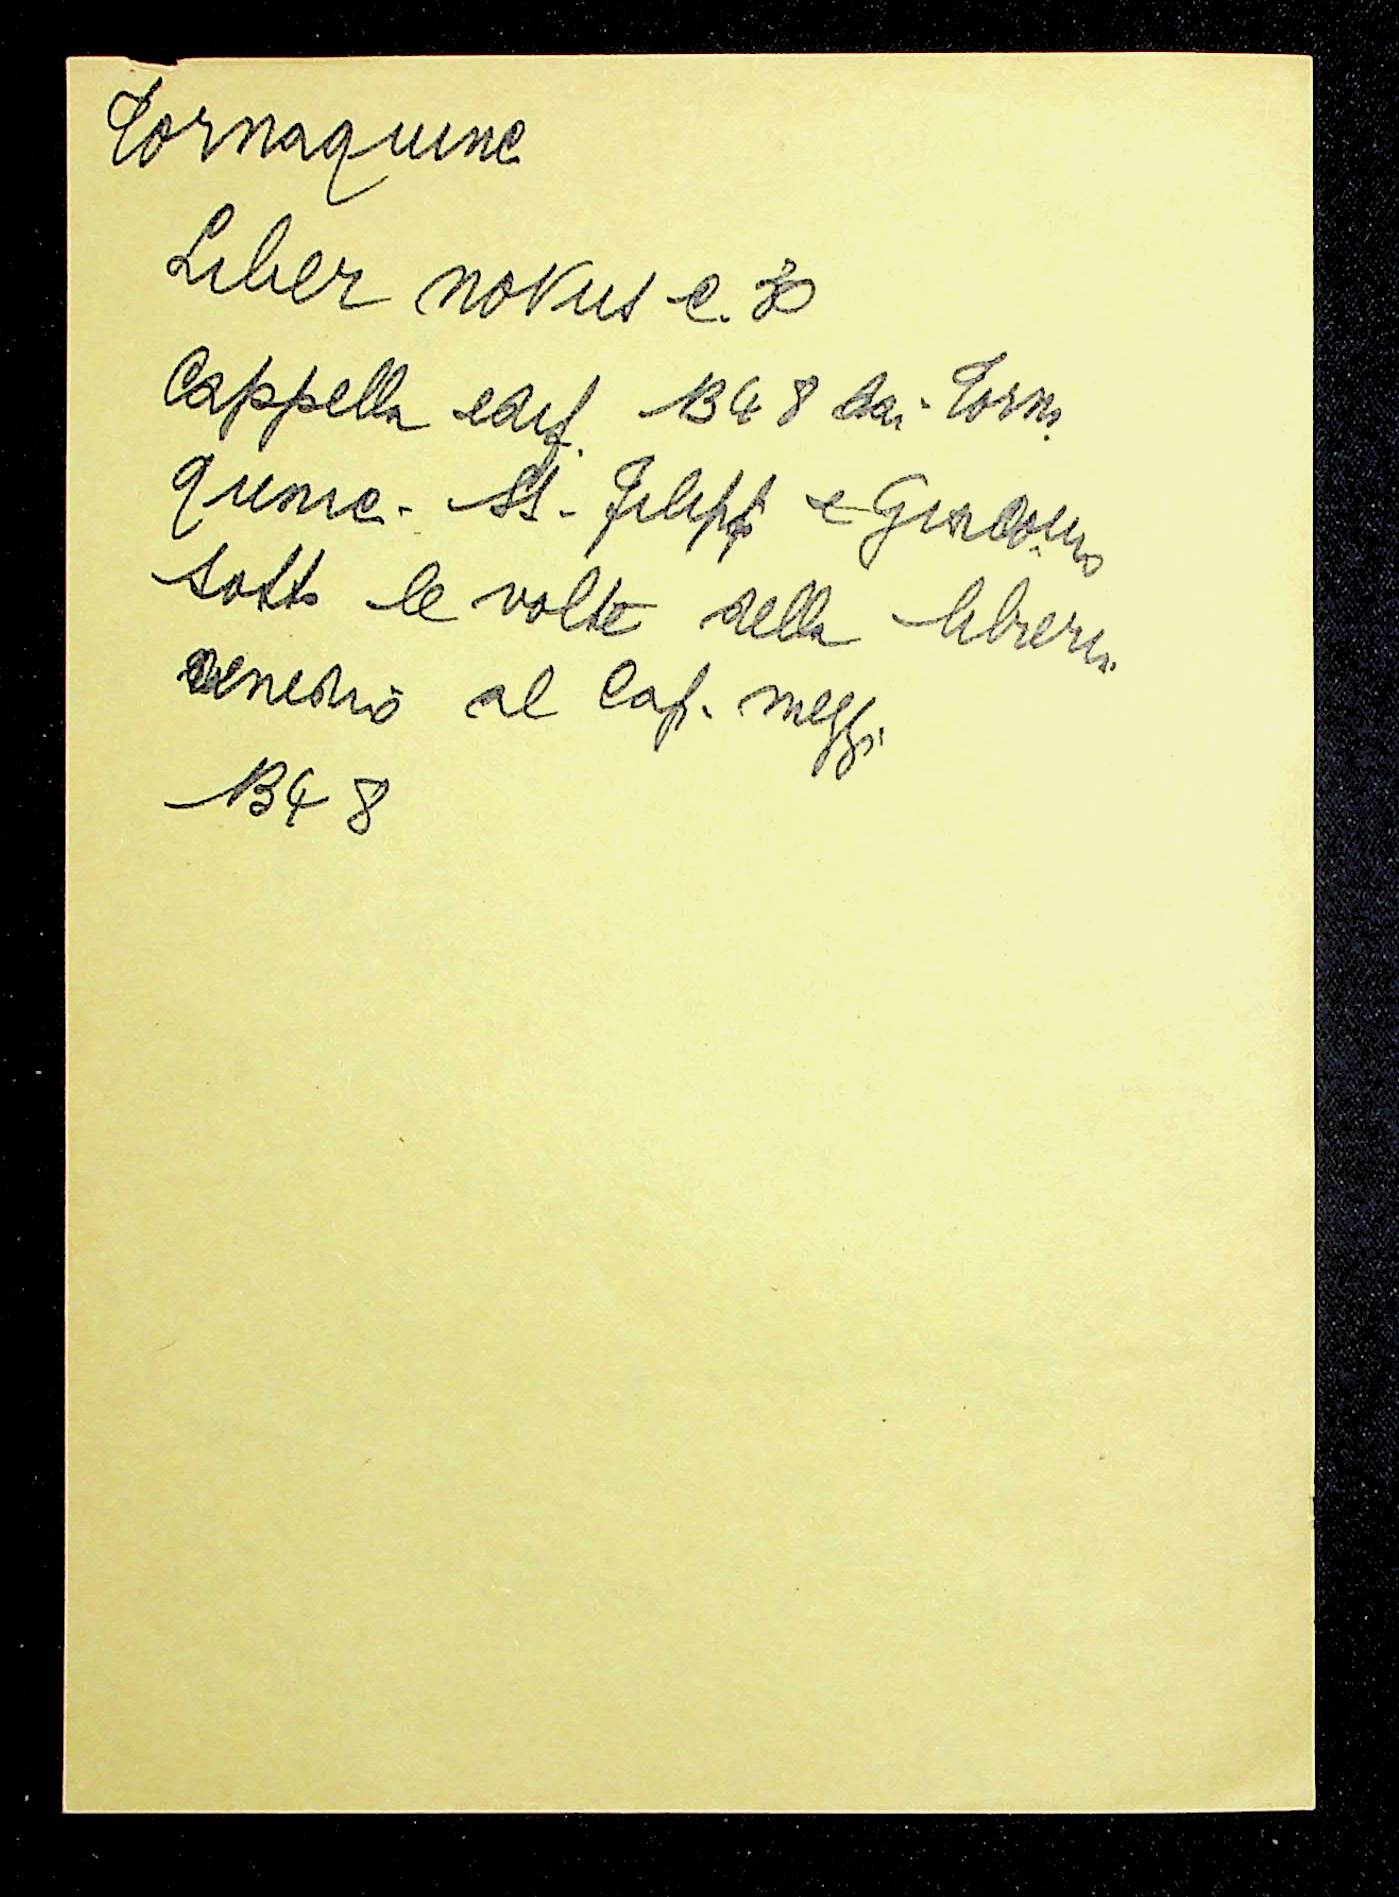 Tornaquinc
Liber novus c. 30
Cappella edif. 1348 dai Torna
quinc. SS. Filippo e Giacomo
sotto le volte della libreria
al Cap. meggi
1348